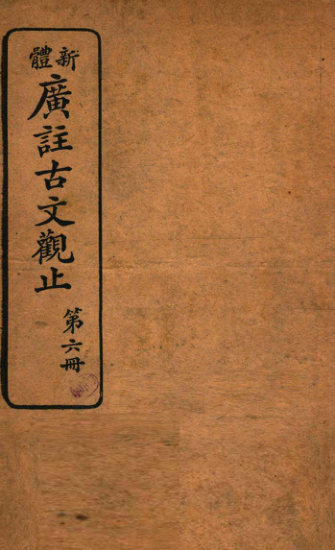 新體
廣註古文觀止
第六冊